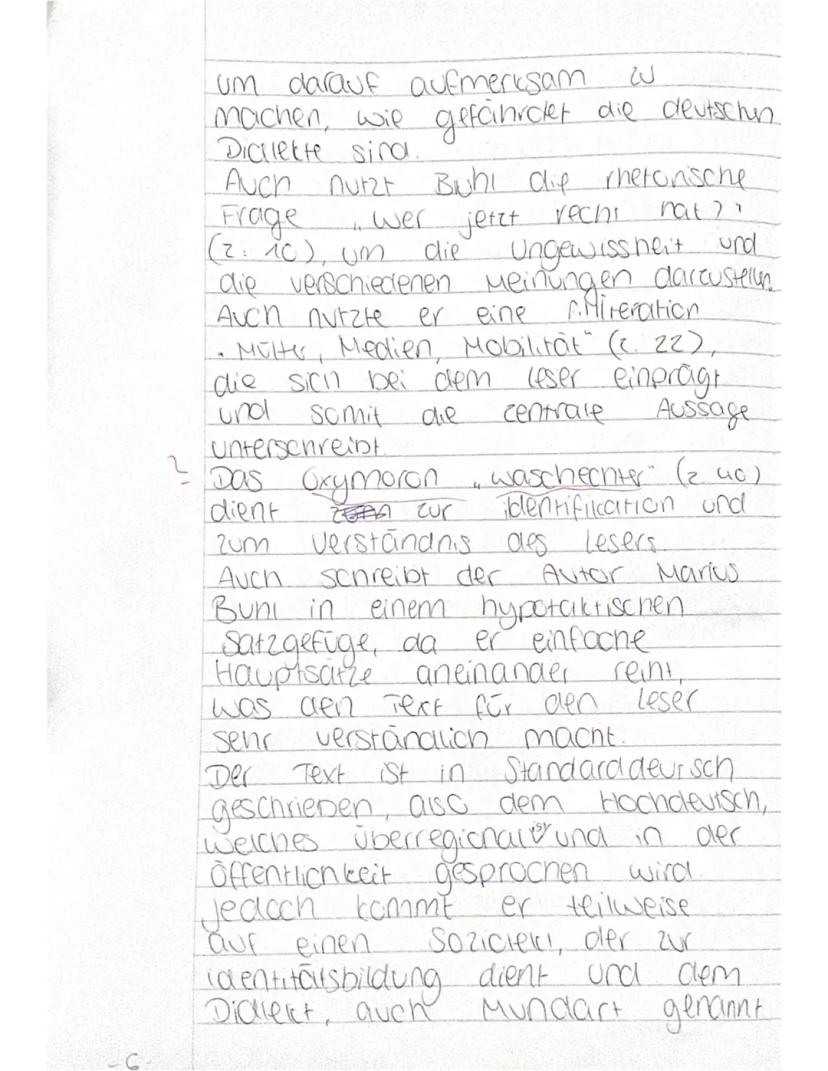 um darauf aufmerksam zu
machen, wie gefährdet die deutschen
Dialekte sind.
Auch nutzt Buhl die rhetorische
Frage „Wer jetzt recht hat?"
(Z. 10), um die Ungewissheit und
die verschiedenen Meinungen darzustellen
Auch nutzte er eine Aliteration
„Mütter, Medien, Mobilität" (Z. 22),
die sich bei dem Leser einprägt
und somit die zentrale Aussage
unterschreibt.
? Das Oxymoron „waschechter" (Z 40)
dient zur identifikation und
zum Verständnis des Lesers.
Auch schreibt der Autor Marius
Buhl in einem hypotaktischen
Satzgefüge, da er einfache
Hauptsätze aneinander reiht,
was den Text für den Leser
sehr verständlich macht.
Der Text ist in Standarddeutsch
geschrieben, also dem Hochdeutsch,
welches überregional ist und in der
Öffentlichkeit gesprochen wird.
Jedoch kommt er teilweise
auf einen Soziolekt, der zur
identitätsbildung dient und dem
Dialekt, auch Mundart genannt
-6-